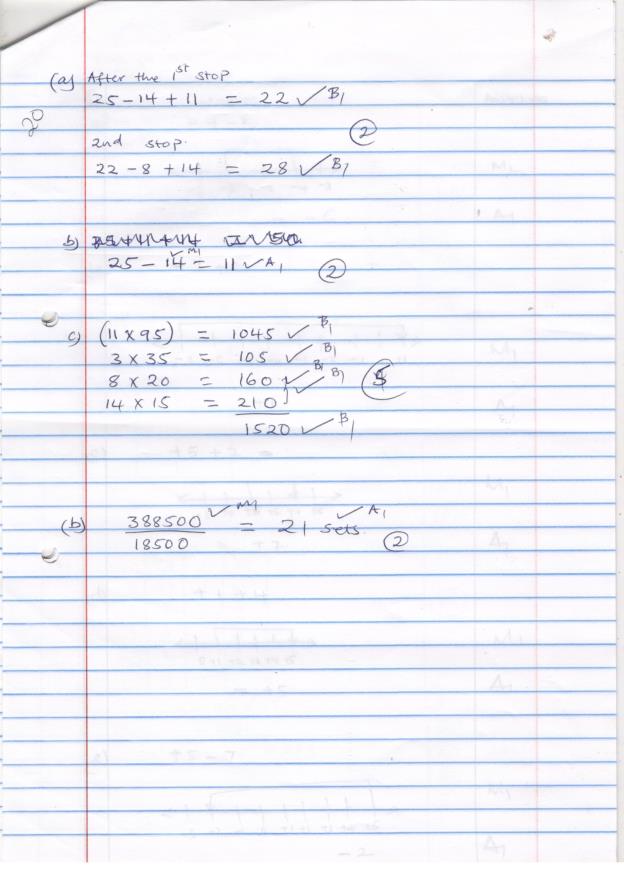 (a) After the 1st stop
25 - 14 + 11 = 22 ✓ B1
20
②
2nd stop.
22 - 8 + 14 = 28 ✓ B1
b)
25 - 14 ✓M1 = 11 ✓ A1
②
c) (11 x 95) = 1045 ✓ B1
3 x 35 = 105 ✓ B1
8 x 20 = 160 ✓ B1
14 x 15 = 210 ✓ B1
1520 ✓ B1
(b) 388500 ✓ M1 = 21 sets ✓ A1
18500
②